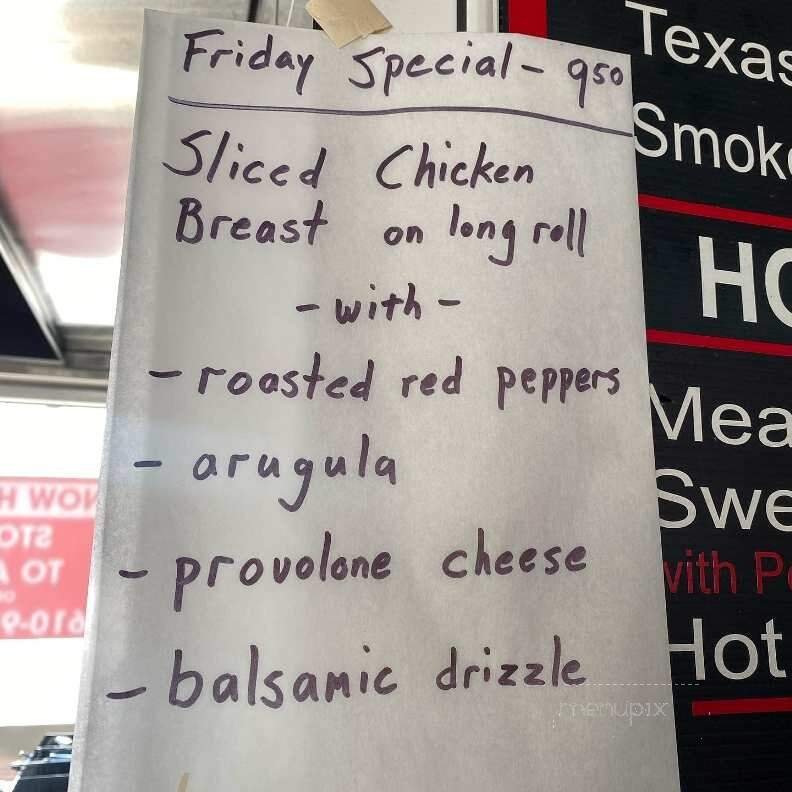 Friday Special - 9.50
Sliced Chicken
Breast on long roll
- with -
- roasted red peppers
- arugula
- provolone cheese
- balsamic drizzle
Texas
Smoke
HO
Mea
Swe
with Po
Hot
NOW H
STO
TO A
610-9
menupix